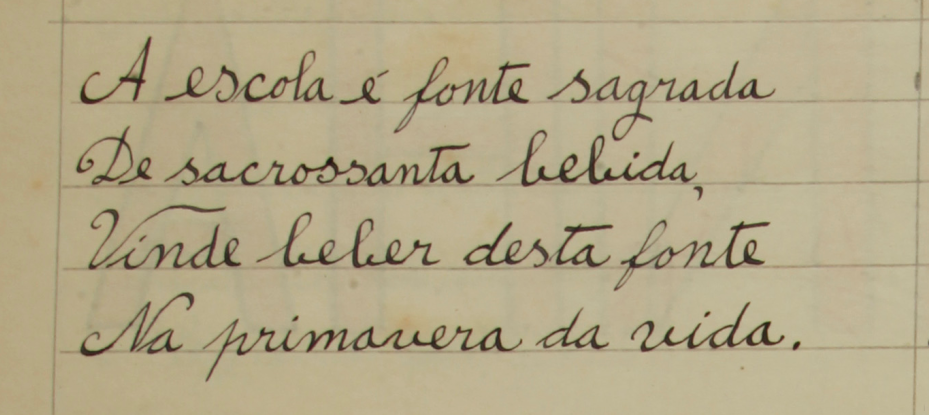 A escola é fonte sagrada
De sacrossanta bebida,
Vinde beber desta fonte
Na primavera da vida.